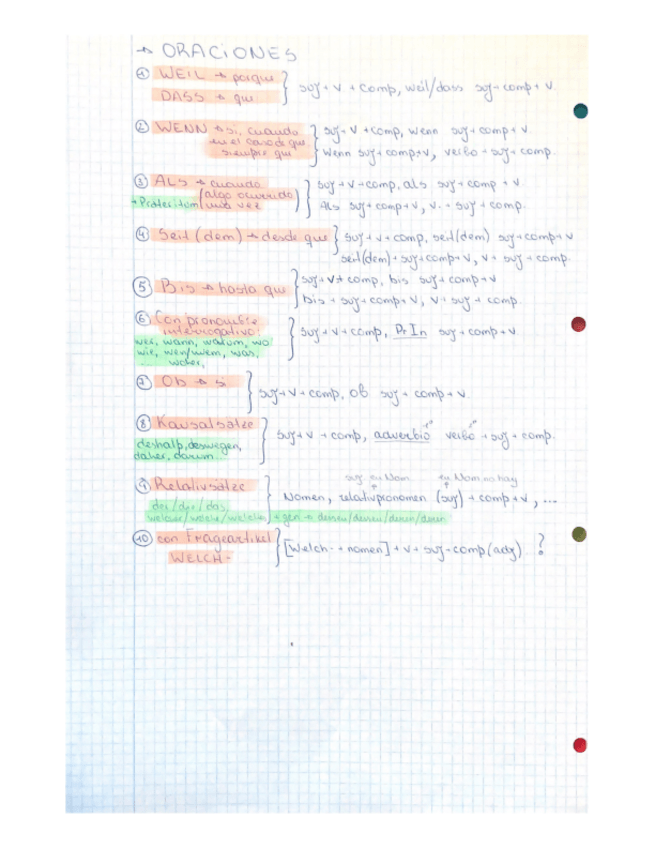 → ORACIONES
① WEIL → porque
DASS → que
suj + v + comp, weil/dass suj + comp + v
② WENN → si, cuando
en el caso de que
siempre que
suj + v + comp, wenn suj + comp + v
Wenn suj + comp + v, verbo + suj + comp.
③ ALS → cuando
(algo ocurrido
una vez)
→ Präteritum
suj + v + comp, als suj + comp + v
Als suj + comp + v, v + suj + comp.
④ Seit (dem) → desde que
suj + v + comp, seit(dem) suj + comp + v
seit(dem) + suj + comp + v, v + suj + comp
⑤ Bis → hasta que
suj + v + comp, bis suj + comp + v
bis + suj + comp + v, v + suj + comp.
⑥ Con pronombre
interrogativo:
wer, wann, warum, wo
wie, wen/wem, was,
... woher,
suj + v + comp, PrIn suj + comp + v
⑦ Ob → si
suj + v + comp, ob suj + comp + v
⑧ Kausalsätze
deshalb, deswegen,
daher, darum...
suj + v + comp, adverbio verbo + suj + comp.
⑨ Relativsätze
der/die/das,
+ gen →
suj
en Nom no hay
Nomen, relativpronomen (suj) + comp + v, ...
⑩ con Frageartikel
WELCH-
[Welch- + nomen] + v + suj + comp (adj) ?